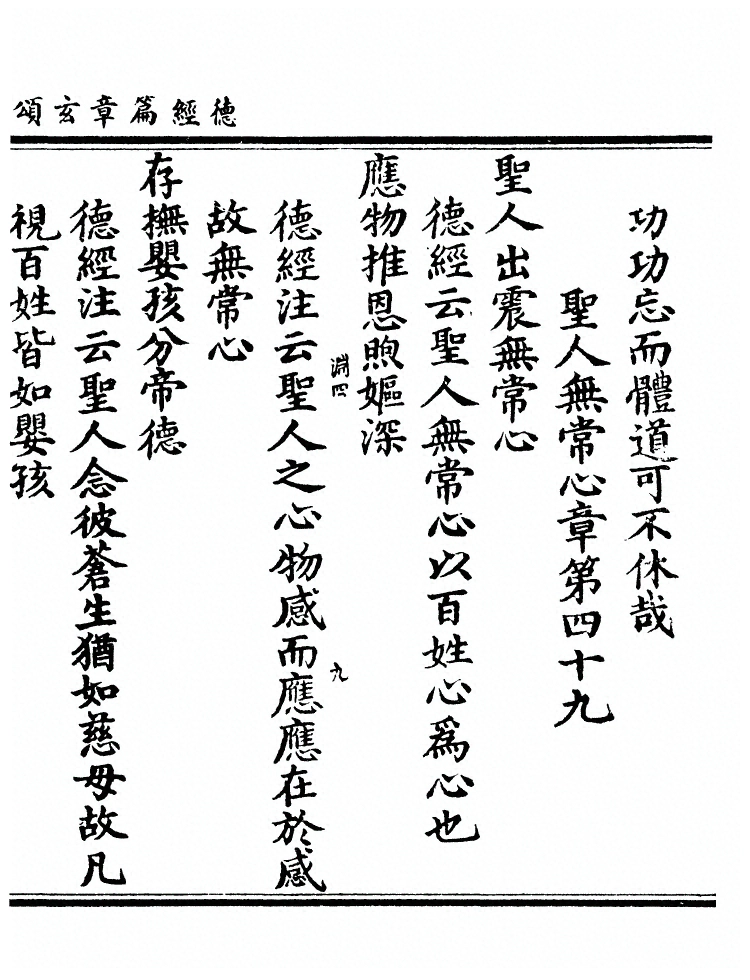 德經篇章玄頌
功功忘而體道可不休哉
聖人無常心章第四十九
聖人出震無常心
德經云聖人無常心以百姓心為心也
應物推恩煦嫗深
淵四
九
德經注云聖人之心物感而應應在於感
故無常心
存撫嬰孩分帝德
德經注云聖人念彼蒼生猶如慈母故凡
視百姓皆如嬰孩